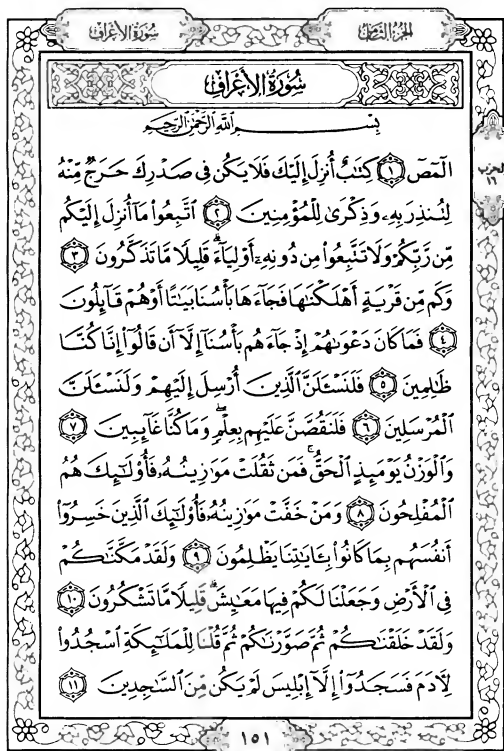 سُورَةُ الأَعْرَافِ
الجُزْءُ الثَّامِنُ
سُورَةُ الأَعْرَافِ
بِسْمِ ٱللَّهِ ٱلرَّحْمَٰنِ ٱلرَّحِيمِ
الٓمٓصٓ ۝١ كِتَٰبٌ أُنزِلَ إِلَيْكَ فَلَا يَكُن فِى صَدْرِكَ حَرَجٌ مِّنْهُ
الحزب ١٦
لِتُنذِرَ بِهِۦ وَذِكْرَىٰ لِلْمُؤْمِنِينَ ۝٢ ٱتَّبِعُوا۟ مَآ أُنزِلَ إِلَيْكُم
مِّن رَّبِّكُمْ وَلَا تَتَّبِعُوا۟ مِن دُونِهِۦٓ أَوْلِيَآءَ ۗ قَلِيلًا مَّا تَذَكَّرُونَ ۝٣
وَكَم مِّن قَرْيَةٍ أَهْلَكْنَٰهَا فَجَآءَهَا بَأْسُنَا بَيَٰتًا أَوْ هُمْ قَآئِلُونَ
۝٤ فَمَا كَانَ دَعْوَىٰهُمْ إِذْ جَآءَهُم بَأْسُنَآ إِلَّآ أَن قَالُوٓا۟ إِنَّا كُنَّا
ظَٰلِمِينَ ۝٥ فَلَنَسْـَٔلَنَّ ٱلَّذِينَ أُرْسِلَ إِلَيْهِمْ وَلَنَسْـَٔلَنَّ
ٱلْمُرْسَلِينَ ۝٦ فَلَنَقُصَّنَّ عَلَيْهِم بِعِلْمٍ ۖ وَمَا كُنَّا غَآئِبِينَ ۝٧
وَٱلْوَزْنُ يَوْمَئِذٍ ٱلْحَقُّ ۚ فَمَن ثَقُلَتْ مَوَٰزِينُهُۥ فَأُو۟لَٰٓئِكَ هُمُ
ٱلْمُفْلِحُونَ ۝٨ وَمَنْ خَفَّتْ مَوَٰزِينُهُۥ فَأُو۟لَٰٓئِكَ ٱلَّذِينَ خَسِرُوٓا۟
أَنفُسَهُم بِمَا كَانُوا۟ بِـَٔايَٰتِنَا يَظْلِمُونَ ۝٩ وَلَقَدْ مَكَّنَّٰكُمْ
فِى ٱلْأَرْضِ وَجَعَلْنَا لَكُمْ فِيهَا مَعَٰيِشَ ۗ قَلِيلًا مَّا تَشْكُرُونَ ۝١٠
وَلَقَدْ خَلَقْنَٰكُمْ ثُمَّ صَوَّرْنَٰكُمْ ثُمَّ قُلْنَا لِلْمَلَٰٓئِكَةِ ٱسْجُدُوا۟
لِـَٔادَمَ فَسَجَدُوٓا۟ إِلَّآ إِبْلِيسَ لَمْ يَكُن مِّنَ ٱلسَّٰجِدِينَ ۝١١
١٥١